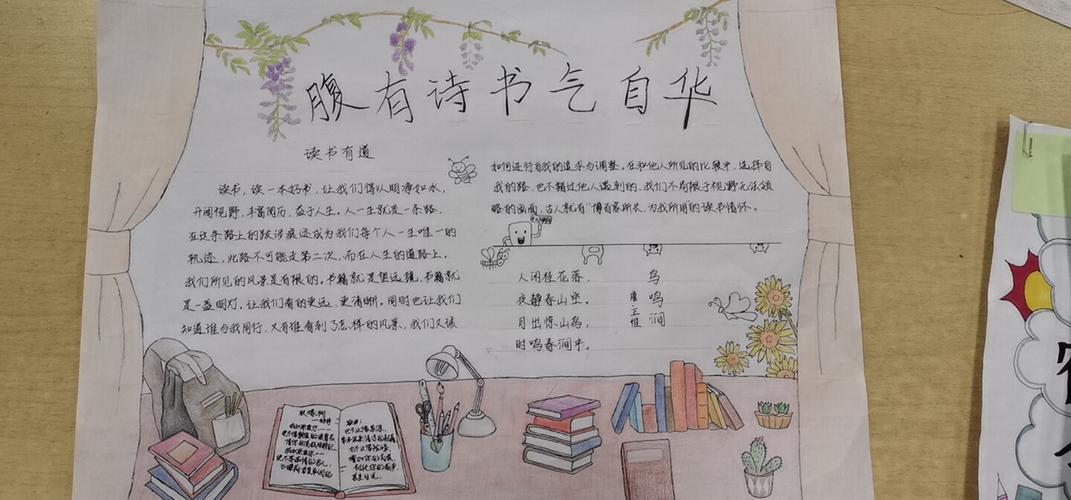 腹有诗书气自华
读书有道
读书，读一本好书，让我们得以明净如水，
开阔视野，丰富阅历，益于人生。人一生就是一条路，
在这条路上的跋涉痕迹成为我们每个人一生唯一的
轨迹，此路不可能走第二次，而在人生的道路上，
我们所见的风景是有限的。书籍就是望远镜，书籍就
是一盏明灯，让我们看的更远、更清晰。同时也让我们
知道谁与我同行，又有谁看到了怎样的风景，我们又该
如何进行自我的追求与调整。在和他人所见的比较中，选择自
我的路，也不错过他人遇到的，我们不局限于视野无法领
略的画面，古人就有"博百家所长，为我所用的读书情怀。
鸟鸣涧
唐·王维
人闲桂花落，
夜静春山空。
月出惊山鸟，
时鸣春涧中。
致橡树
我如果爱你——